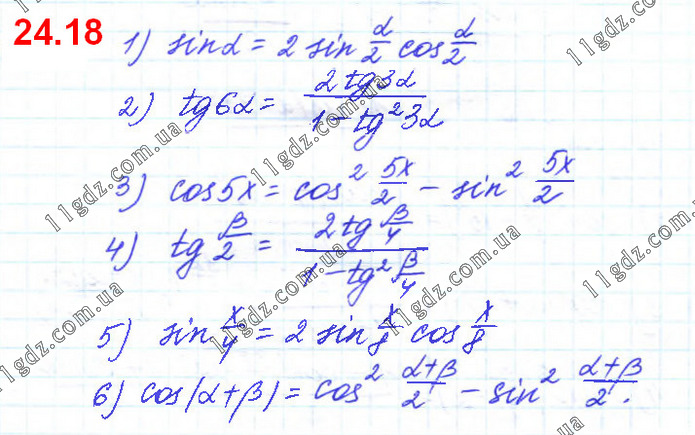 24.18
1) sinα = 2 sin α/2 cos α/2
2) tg6α = 2tg3α / 1 - tg²3α
3) cos5x = cos² 5x/2 - sin² 5x/2
4) tg β/2 = 2tg β/4 / 1 - tg² β/4
5) sin x/4 = 2 sin x/8 cos x/8
6) cos(α+β) = cos² α+β/2 - sin² α+β/2.
11gdz.com.ua
11gdz.com.ua
11gdz.com.ua
11gdz.com.ua
11gdz.com.ua
11gdz.com.ua